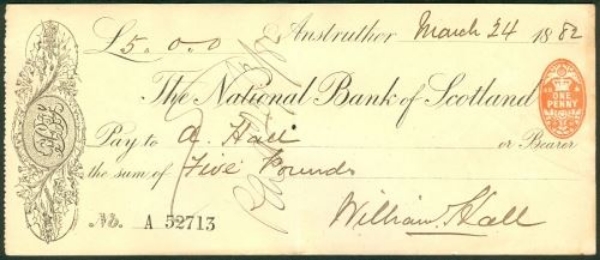 £5.0.0 Anstruther March 24 1882
The National Bank of Scotland
ONE PENNY
Pay to A. Hall or Bearer
the sum of Five Pounds
No. A 52713
William Hall